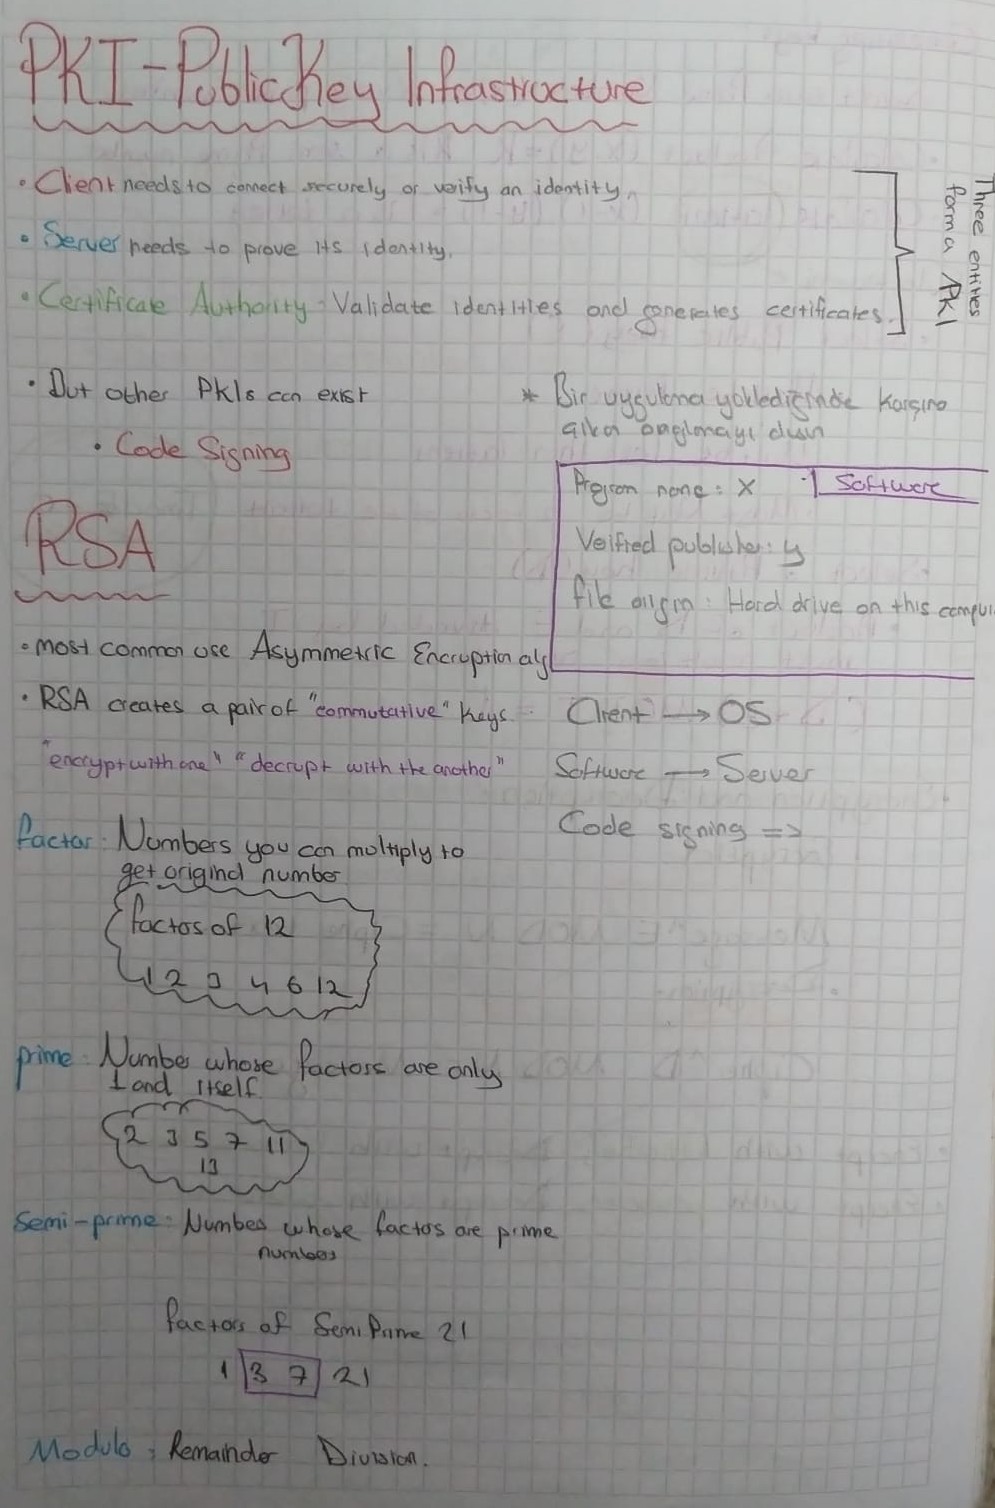 PKI-Public Key Infrastructure
• Client needs to connect securely or verify an identity.
• Server needs to prove its identity.
• Certificate Authority: Validate identities and generates certificates.
Three entities
form a PKI
• But other PKIs can exist
• Code Signing
* Bir uygulama yüklediğinde karşına
çıkan
Program name: X
1 Software
Verified publisher: y
file origin: Hard drive on this
RSA
• most common use Asymmetric Encryption alg
• RSA creates a pair of "commutative" keys.
"encrypt with one" "decrupt with the another"
Client → OS
Software → Server
Code signing =>
factor: Numbers you can multiply to
get original number
factors of 12
1 2 3 4 6 12
prime: Number whose factors are only
1 and itself.
2 3 5 7 11
13
Semi-prime: Numbers whose factors are prime
numbers
factors of Semi Prime 21
1 3 7 21
Modulo: Remainder Division.